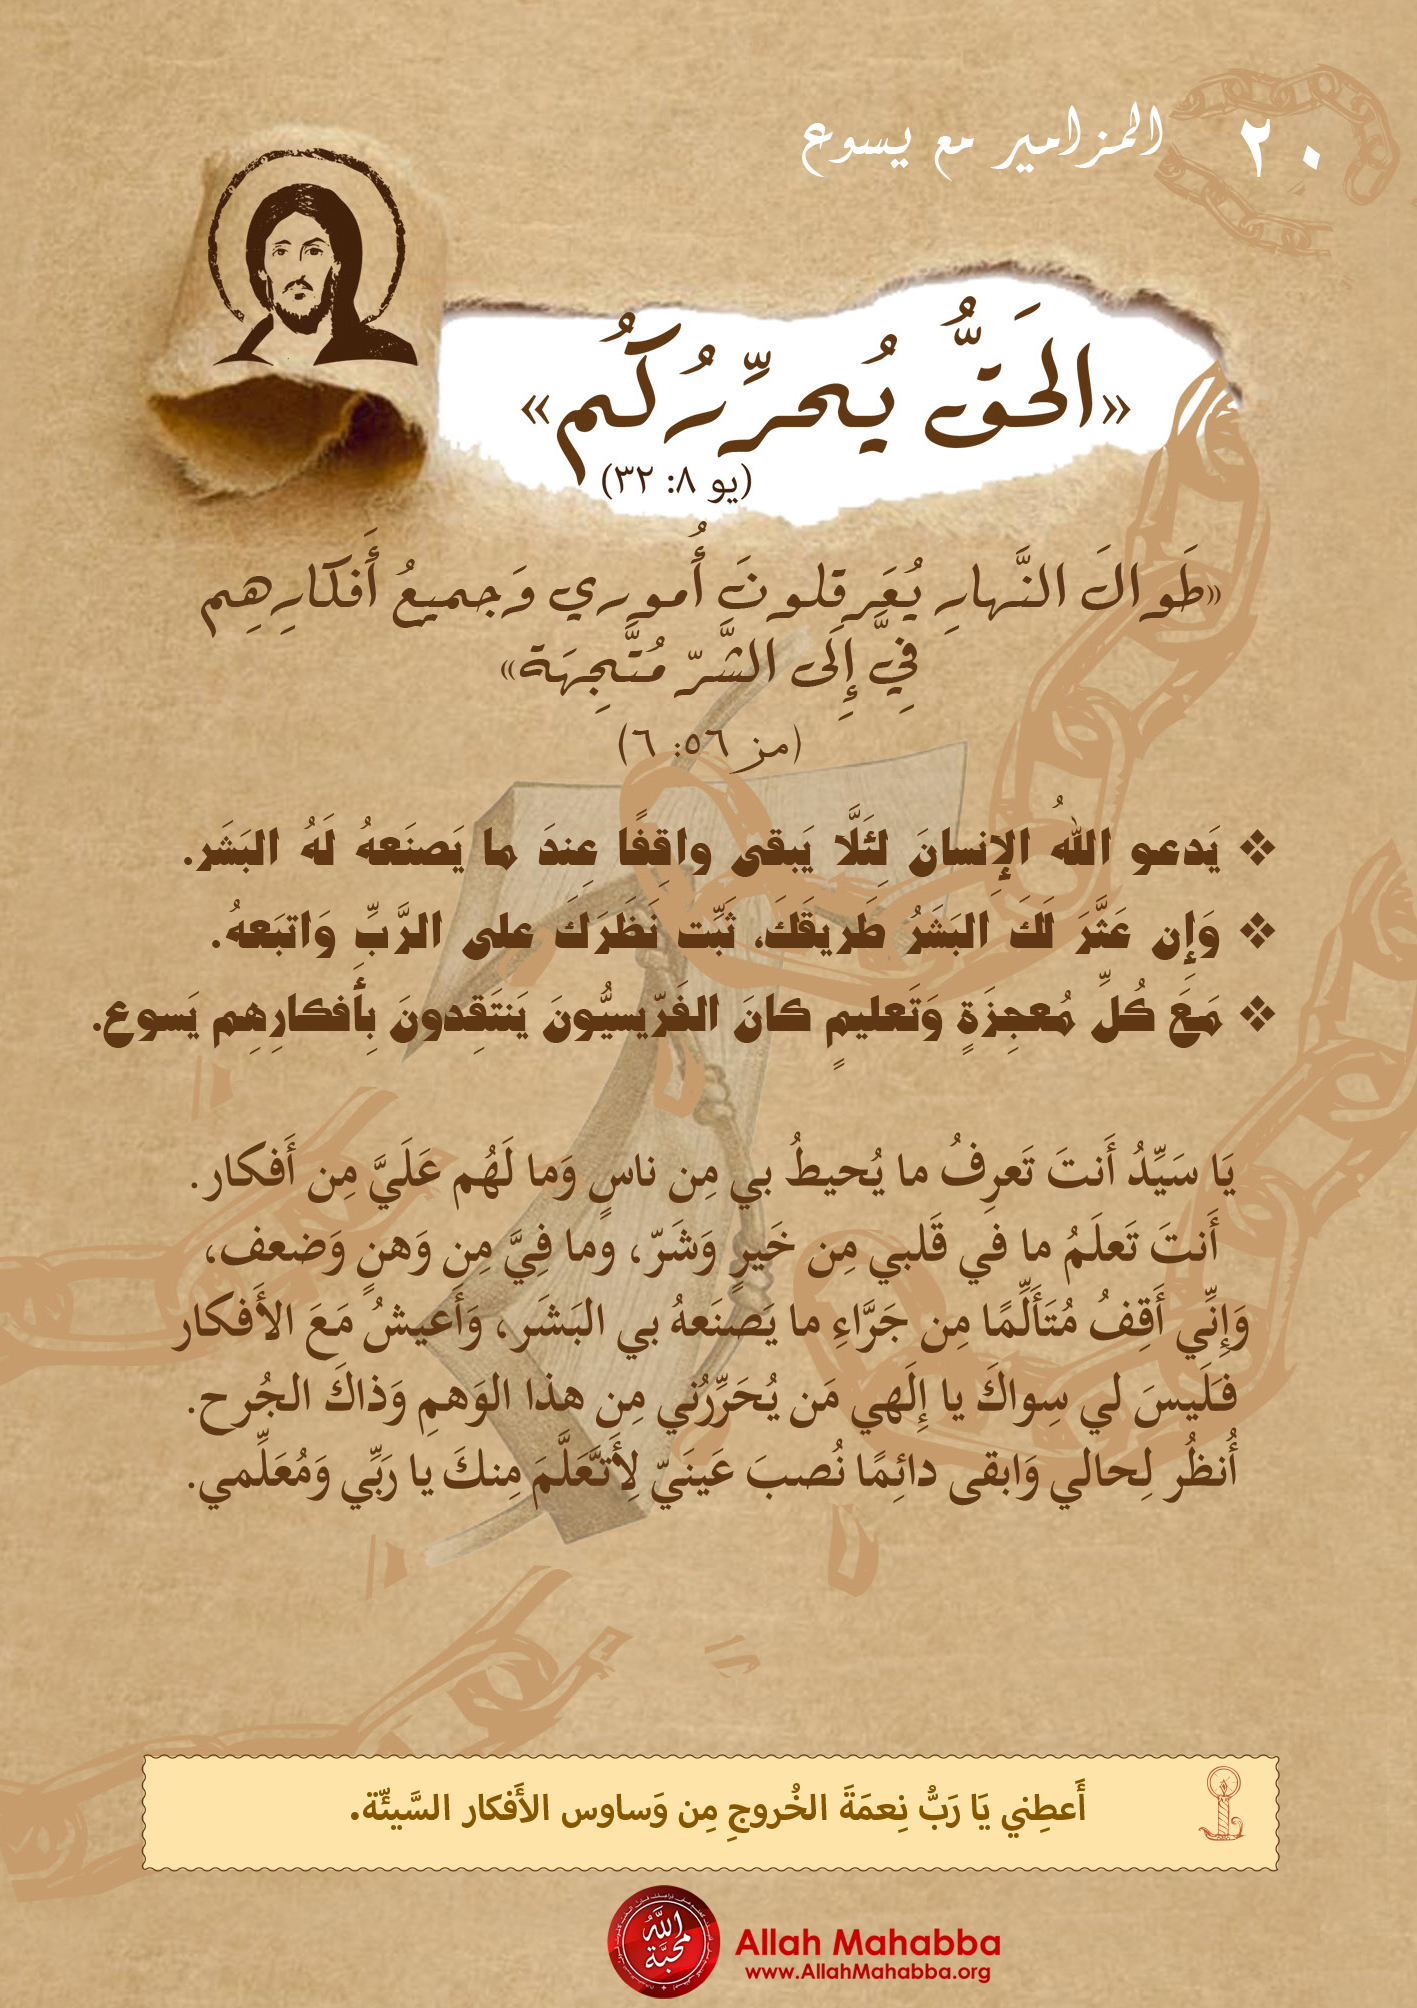 ٢٠ المزامير مع يسوع
«الحَقُّ يُحرِّرُكُم»
(يو ٨: ٣٢)
«طَوالَ النَّهارِ يُعَرقِلونَ أُموري وَجميعُ أَفكارِهِم
فِيَّ إِلَى الشَّرّ مُتَّجِهَة»
(مز ٥٦: ٦)
❖ يَدعو اللهُ الإِنسانَ لِئَلَّا يَبقى واقِفًا عِندَ ما يَصنَعهُ لَهُ البَشَر.
❖ وَإِن عَثَّرَ لَكَ البَشَرُ طَريقَكَ، ثَبِّت نَظَرَكَ على الرَّبِّ وَاتبَعهُ.
❖ مَعَ كُلِّ مُعجِزَةٍ وَتَعليمٍ كانَ الفَرّيسيُّونَ يَنتَقِدونَ بِأَفكارِهِم يَسوع.
يَا سَيِّدُ أَنتَ تَعرِفُ ما يُحيطُ بي مِن ناسٍ وَما لَهُم عَلَيَّ مِن أَفكار.
أَنتَ تَعلَمُ ما في قَلبي مِن خَيرٍ وَشَرّ، وما فِيَّ مِن وَهنٍ وَضعف،
وَإِنِّي أَقِفُ مُتَأَلِّمًا مِن جَرَّاءِ ما يَصنَعهُ بي البَشَر، وَأَعيشُ مَعَ الأَفكار
فَلَيسَ لي سِواكَ يا إِلَهي مَن يُحَرِّرُني مِن هذا الوَهمِ وَذاكَ الجُرح.
أُنظُر لِحالي وَابقى دائِمًا نُصبَ عَينَيّ لِأَتَعَلَّمَ مِنكَ يا رَبِّي وَمُعَلِّمي.
أَعطِني يَا رَبُّ نِعمَةَ الخُروجِ مِن وَساوس الأَفكار السَّيئّة.
الله محبّة
Allah Mahabba
www.AllahMahabba.org